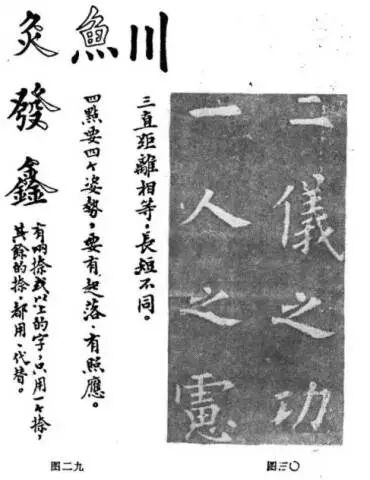 二儀之功
一人之慮
图三〇
川
三直距離相等，長短不同。
魚
四點要四个姿勢，要有起落、有照應。
灸發鑫
有兩捺或以上的字，只用一个捺，
其餘的捺，都用、代替。
图二九